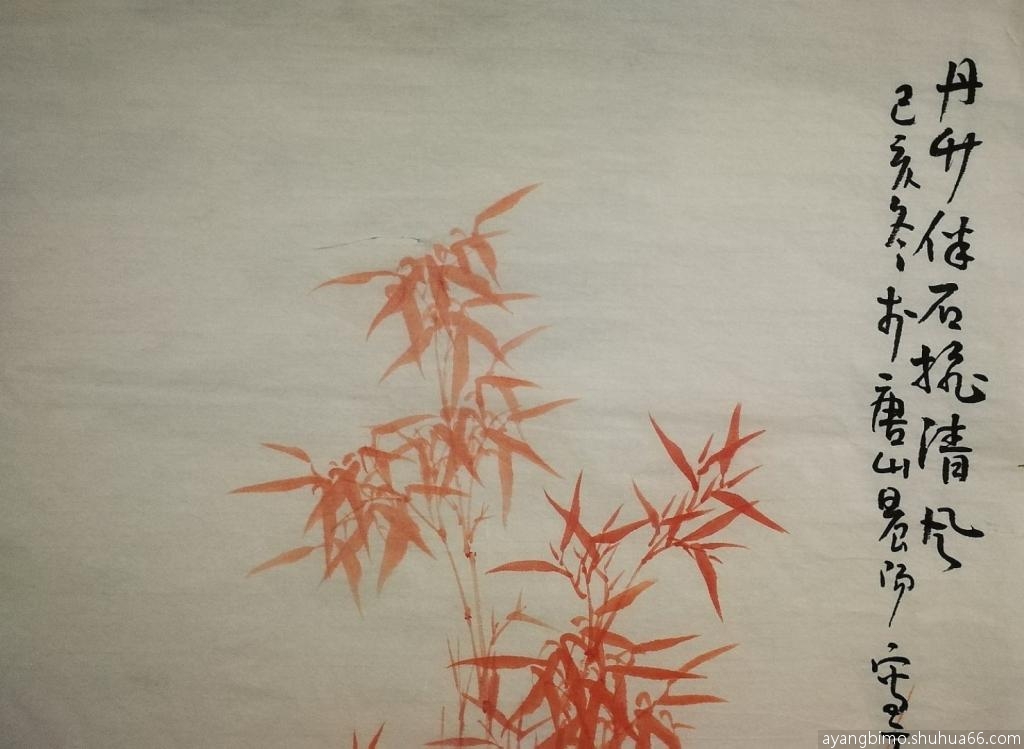 丹竹伴石清风
己亥冬於唐山晨阳
ayangbimo.shuhua66.com